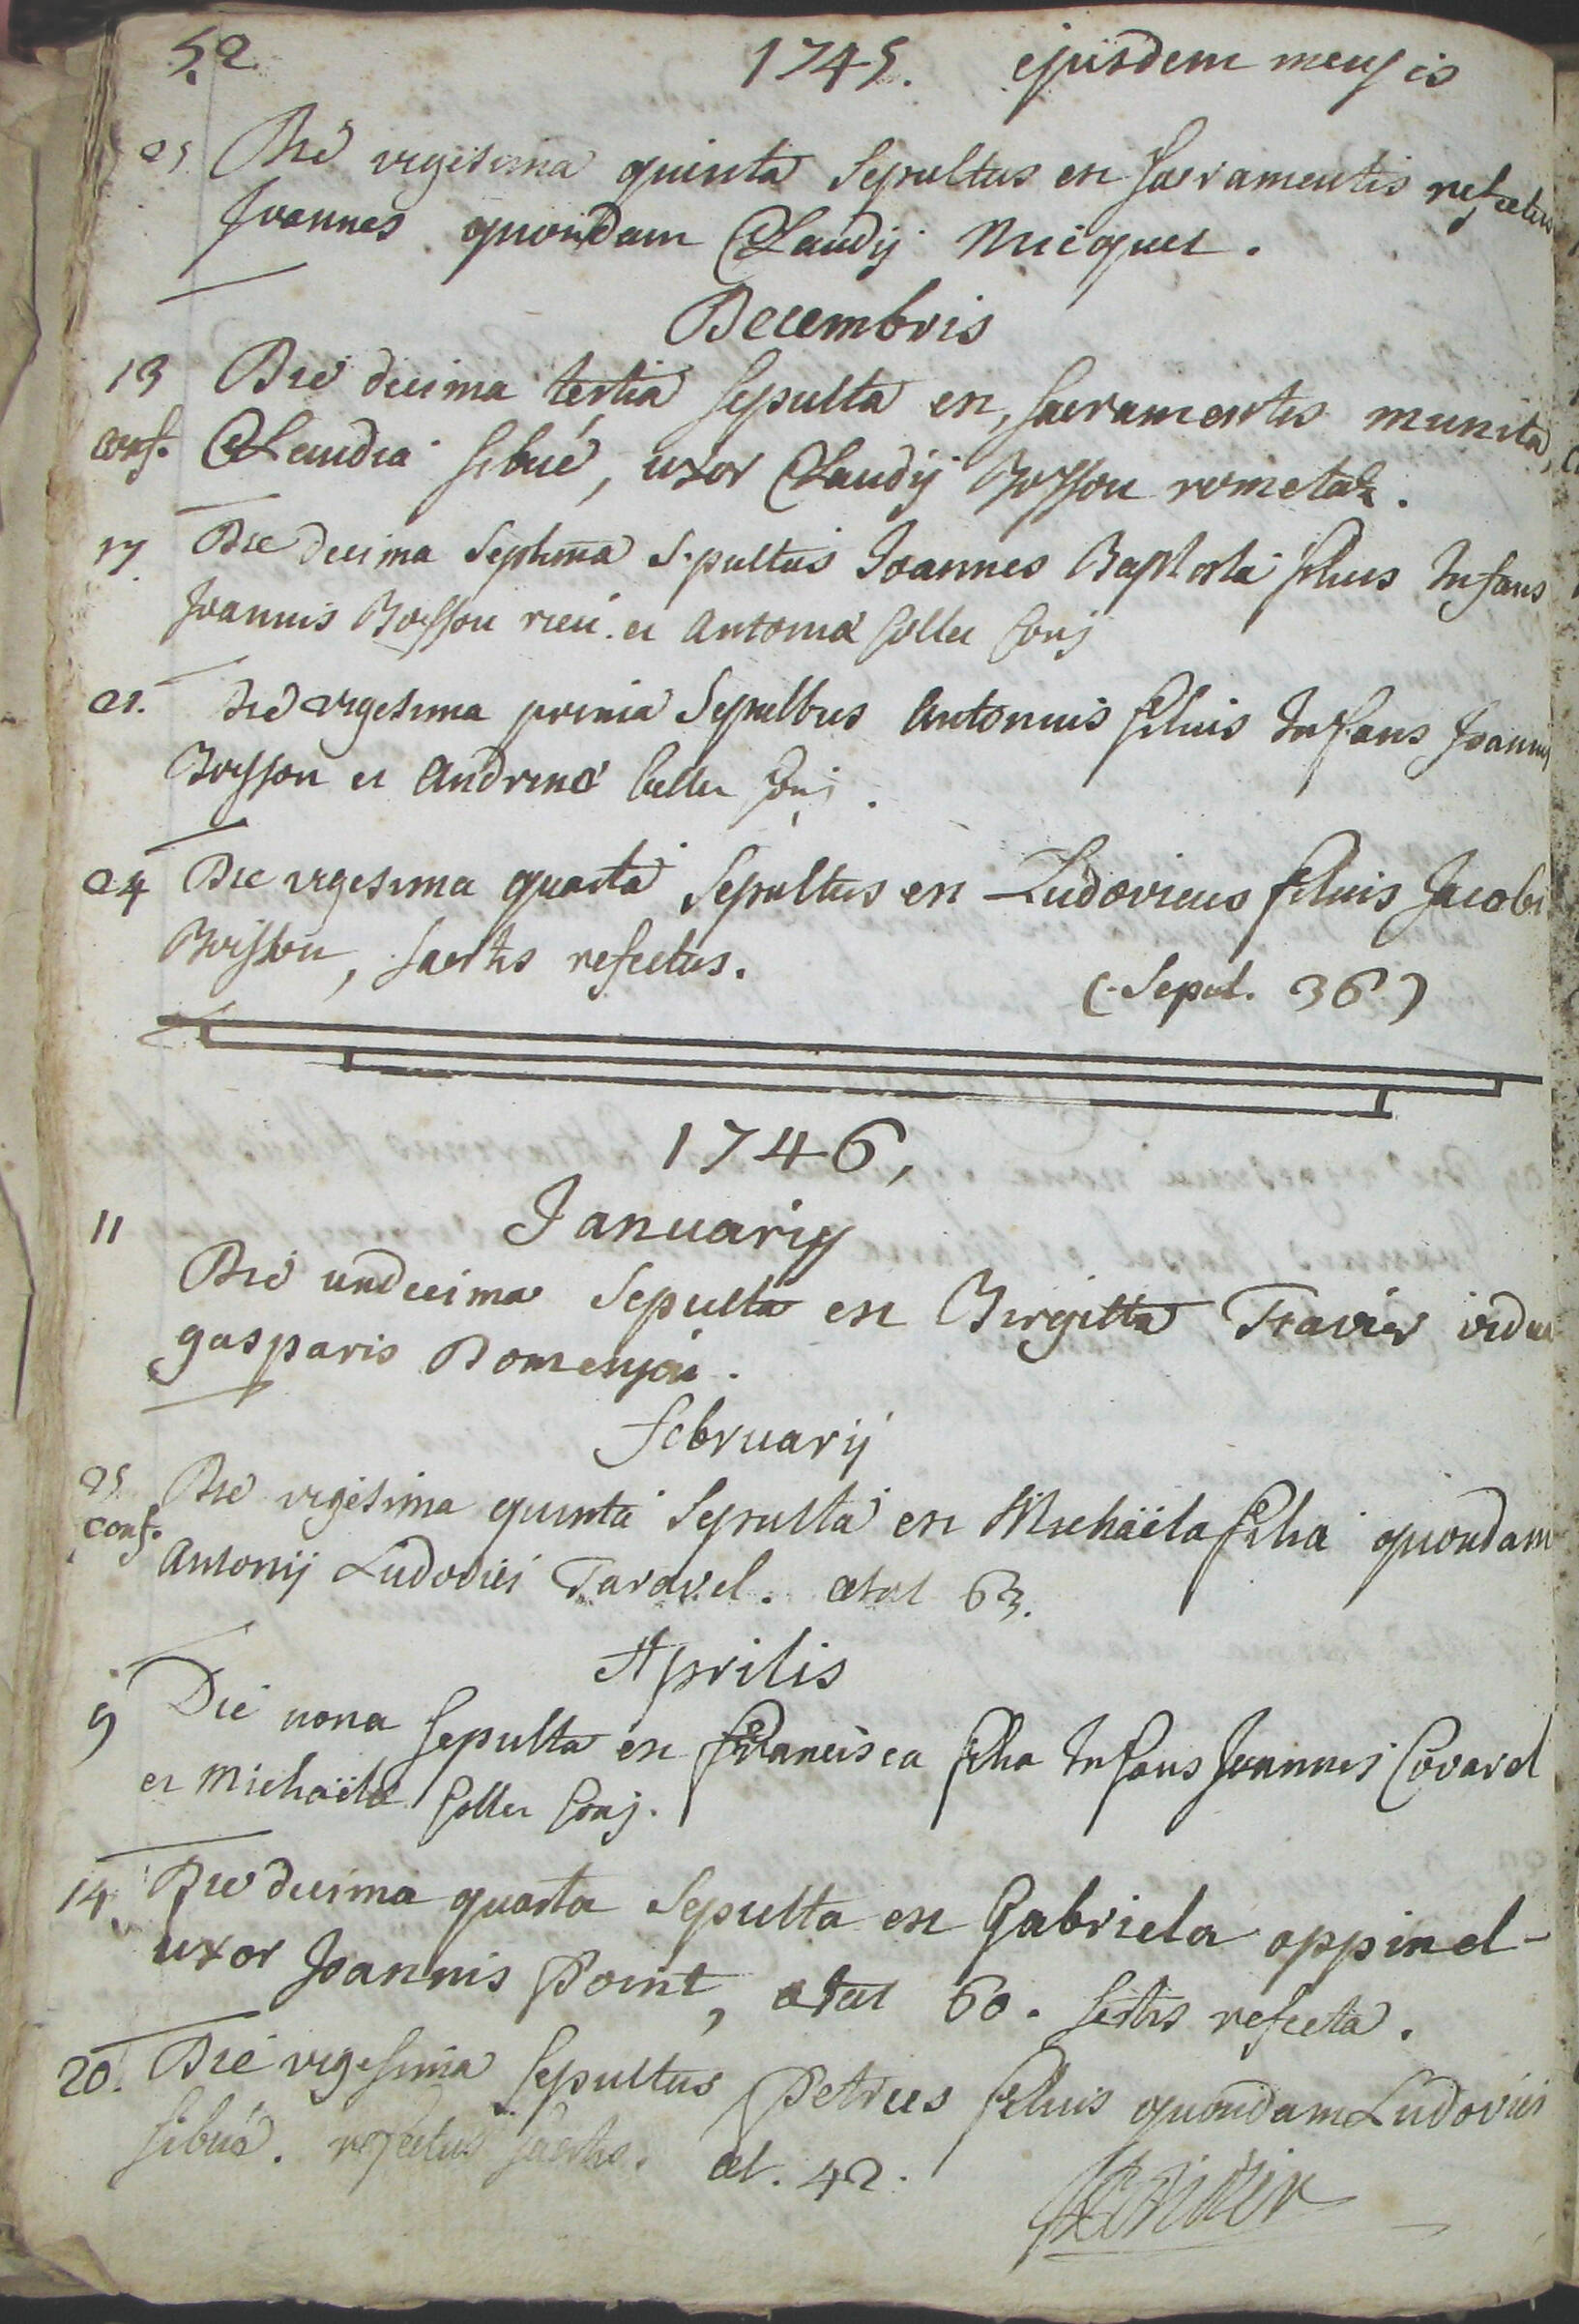 52 1745. ejusdem mensis
25. Die vigesima quinta Sepultus est Sacramentis refectus
Joannes quondam Claudij Micquet.
Decembris
13 Die decima tertia sepulta est, sacramentis munita,
conf. Claudia sibué, uxor Claudij Boisson rometaz.
17 Die decima Septima Sepultus Joannes Baptista filius Infans
Joannis Boisson rieu. et Antonia Collet Conj
21. Die vigesima prima Sepultus Antonius filius Infans Joannis
Boisson et Andreæ Collet Conj.
24 Die vigesima quarta Sepultus est Ludovicus filius Jacobi
Boisson, sactis refectus.
(Sepul. 36)
1746,
Januarij
11
Die undecima Sepulta est Birgitta Travier vidua
gasparis Domenjou.
februarij
25 Die vigesima quinta Sepulta est Michaëla filia quondam
conf. Antonij Ludovici Taravel. ætat 63.
Aprilis
9 Die nona sepulta est Francisca filia Infans Joannis Covarel
et Michaëlæ Collet Conj.
14 Die decima quarta Sepulta est Gabriela oppinel-
uxor Joannis Point, ætat 60. sctis refecta.
20. Die vigesima sepultus Petrus filius quondam Ludovici
sibué. refectus sactis. æt. 42.